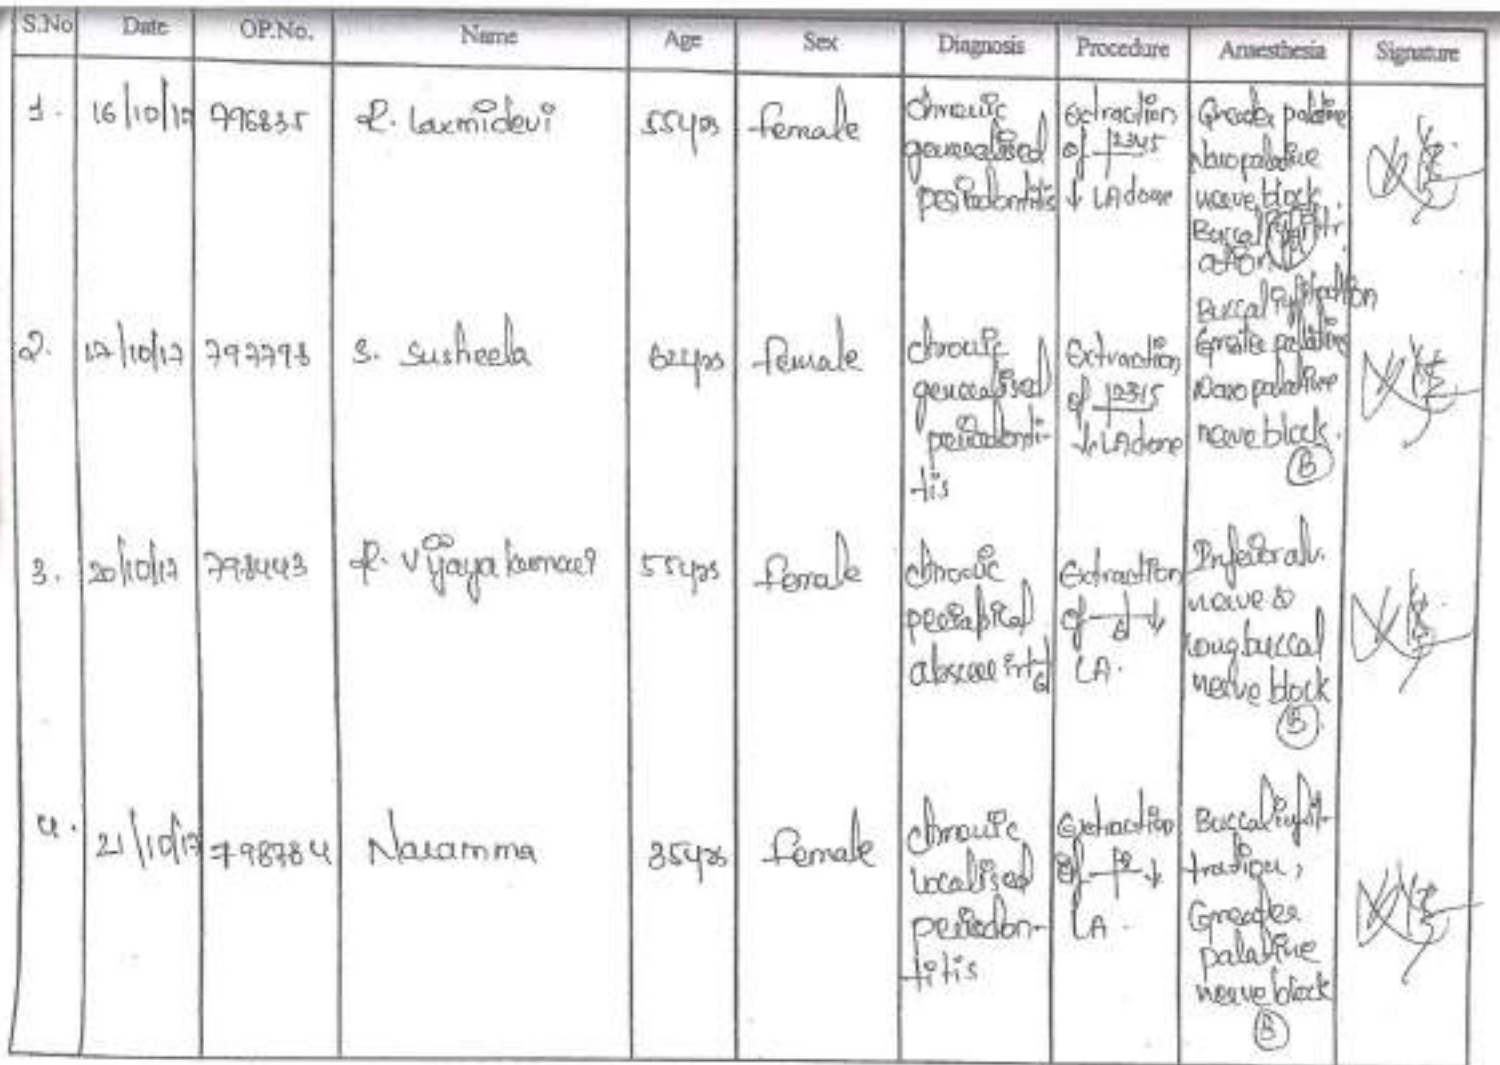 S.No Date OP.No. Name Age Sex Diagnosis Procedure Anaesthesia Signature
1. 16/10/17 796835 R. Laxmidevi 55yrs female
chronic
generalised
periodontitis
Extraction
of 12345
↓ LA done
Greater palatine
Nasopalatine
nerve block.
Buccal infiltr
ation
2. 17/10/17 797798 S. Susheela 62yrs female
chronic
generalised
periodonti-
tis
Extraction
of 12345
↓ LA done
Buccal infiltration
Greater palatine
Nasopalatine
nerve block.
B
3. 20/10/17 798443 R. Vijaya kumari 55yrs female
chronic
periapical
abscess irt 6
Extraction
of 6 ↓
LA.
Inferior alv.
nerve &
Long buccal
nerve block
B
4. 21/10/17 798784 Naramma 35yrs female
chronic
localised
periodon-
titis
Extraction
of ↓
LA.
Buccal infilt-
tration,
Greater
palatine
nerve block
B